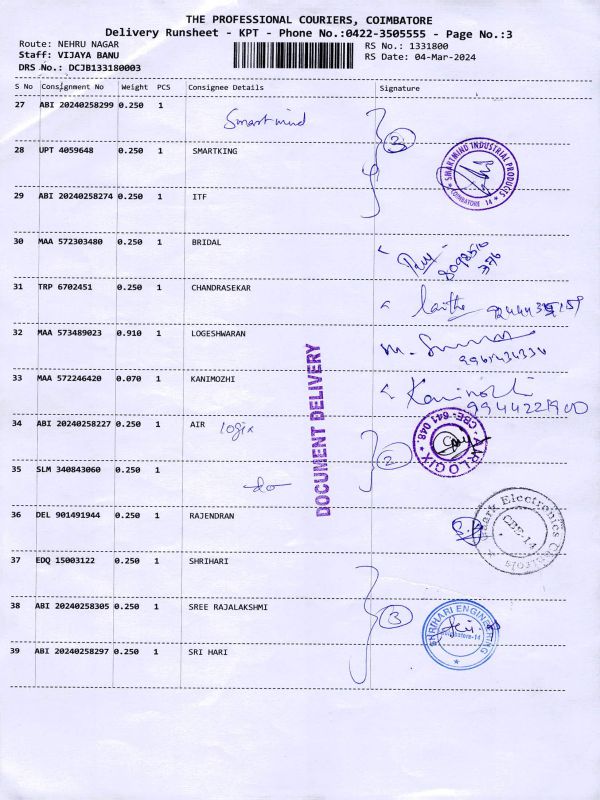 THE PROFESSIONAL COURIERS, COIMBATORE
Delivery Runsheet - KPT - Phone No.:0422-3505555 - Page No.:3
Route: NEHRU NAGAR RS No.: 1331800
Staff: VIJAYA BANU RS Date: 04-Mar-2024
DRS No.: DCJB133180003
S No Consignment No Weight PCS Consignee Details Signature
27 ABI 20240258299 0.250 1 Smartmind
3
28 UPT 4059648 0.250 1 SMARTKING
SMARTMIND INDUSTRIAL PRODUCTS
* COIMBATORE 14 *
29 ABI 20240258274 0.250 1 ITF
30 MAA 572303480 0.250 1 BRIDAL
31 TRP 6702451 0.250 1 CHANDRASEKAR
32 MAA 573489023 0.910 1 LOGESHWARAN
33 MAA 572246420 0.070 1 KANIMOZHI
Kanimozhi
DOCUMENT DELIVERY
34 ABI 20240258227 0.250 1 AIR Logix
AIRLOGIX
CBE- 641 048.
2
35 SLM 340843060 0.250 1 do
36 DEL 901491944 0.250 1 RAJENDRAN
Electronics
CBE-14
37 EDQ 15003122 0.250 1 SHRIHARI
38 ABI 20240258305 0.250 1 SREE RAJALAKSHMI
3
SHRIHARI ENGINEERING
Coimbatore-14
39 ABI 20240258297 0.250 1 SRI HARI